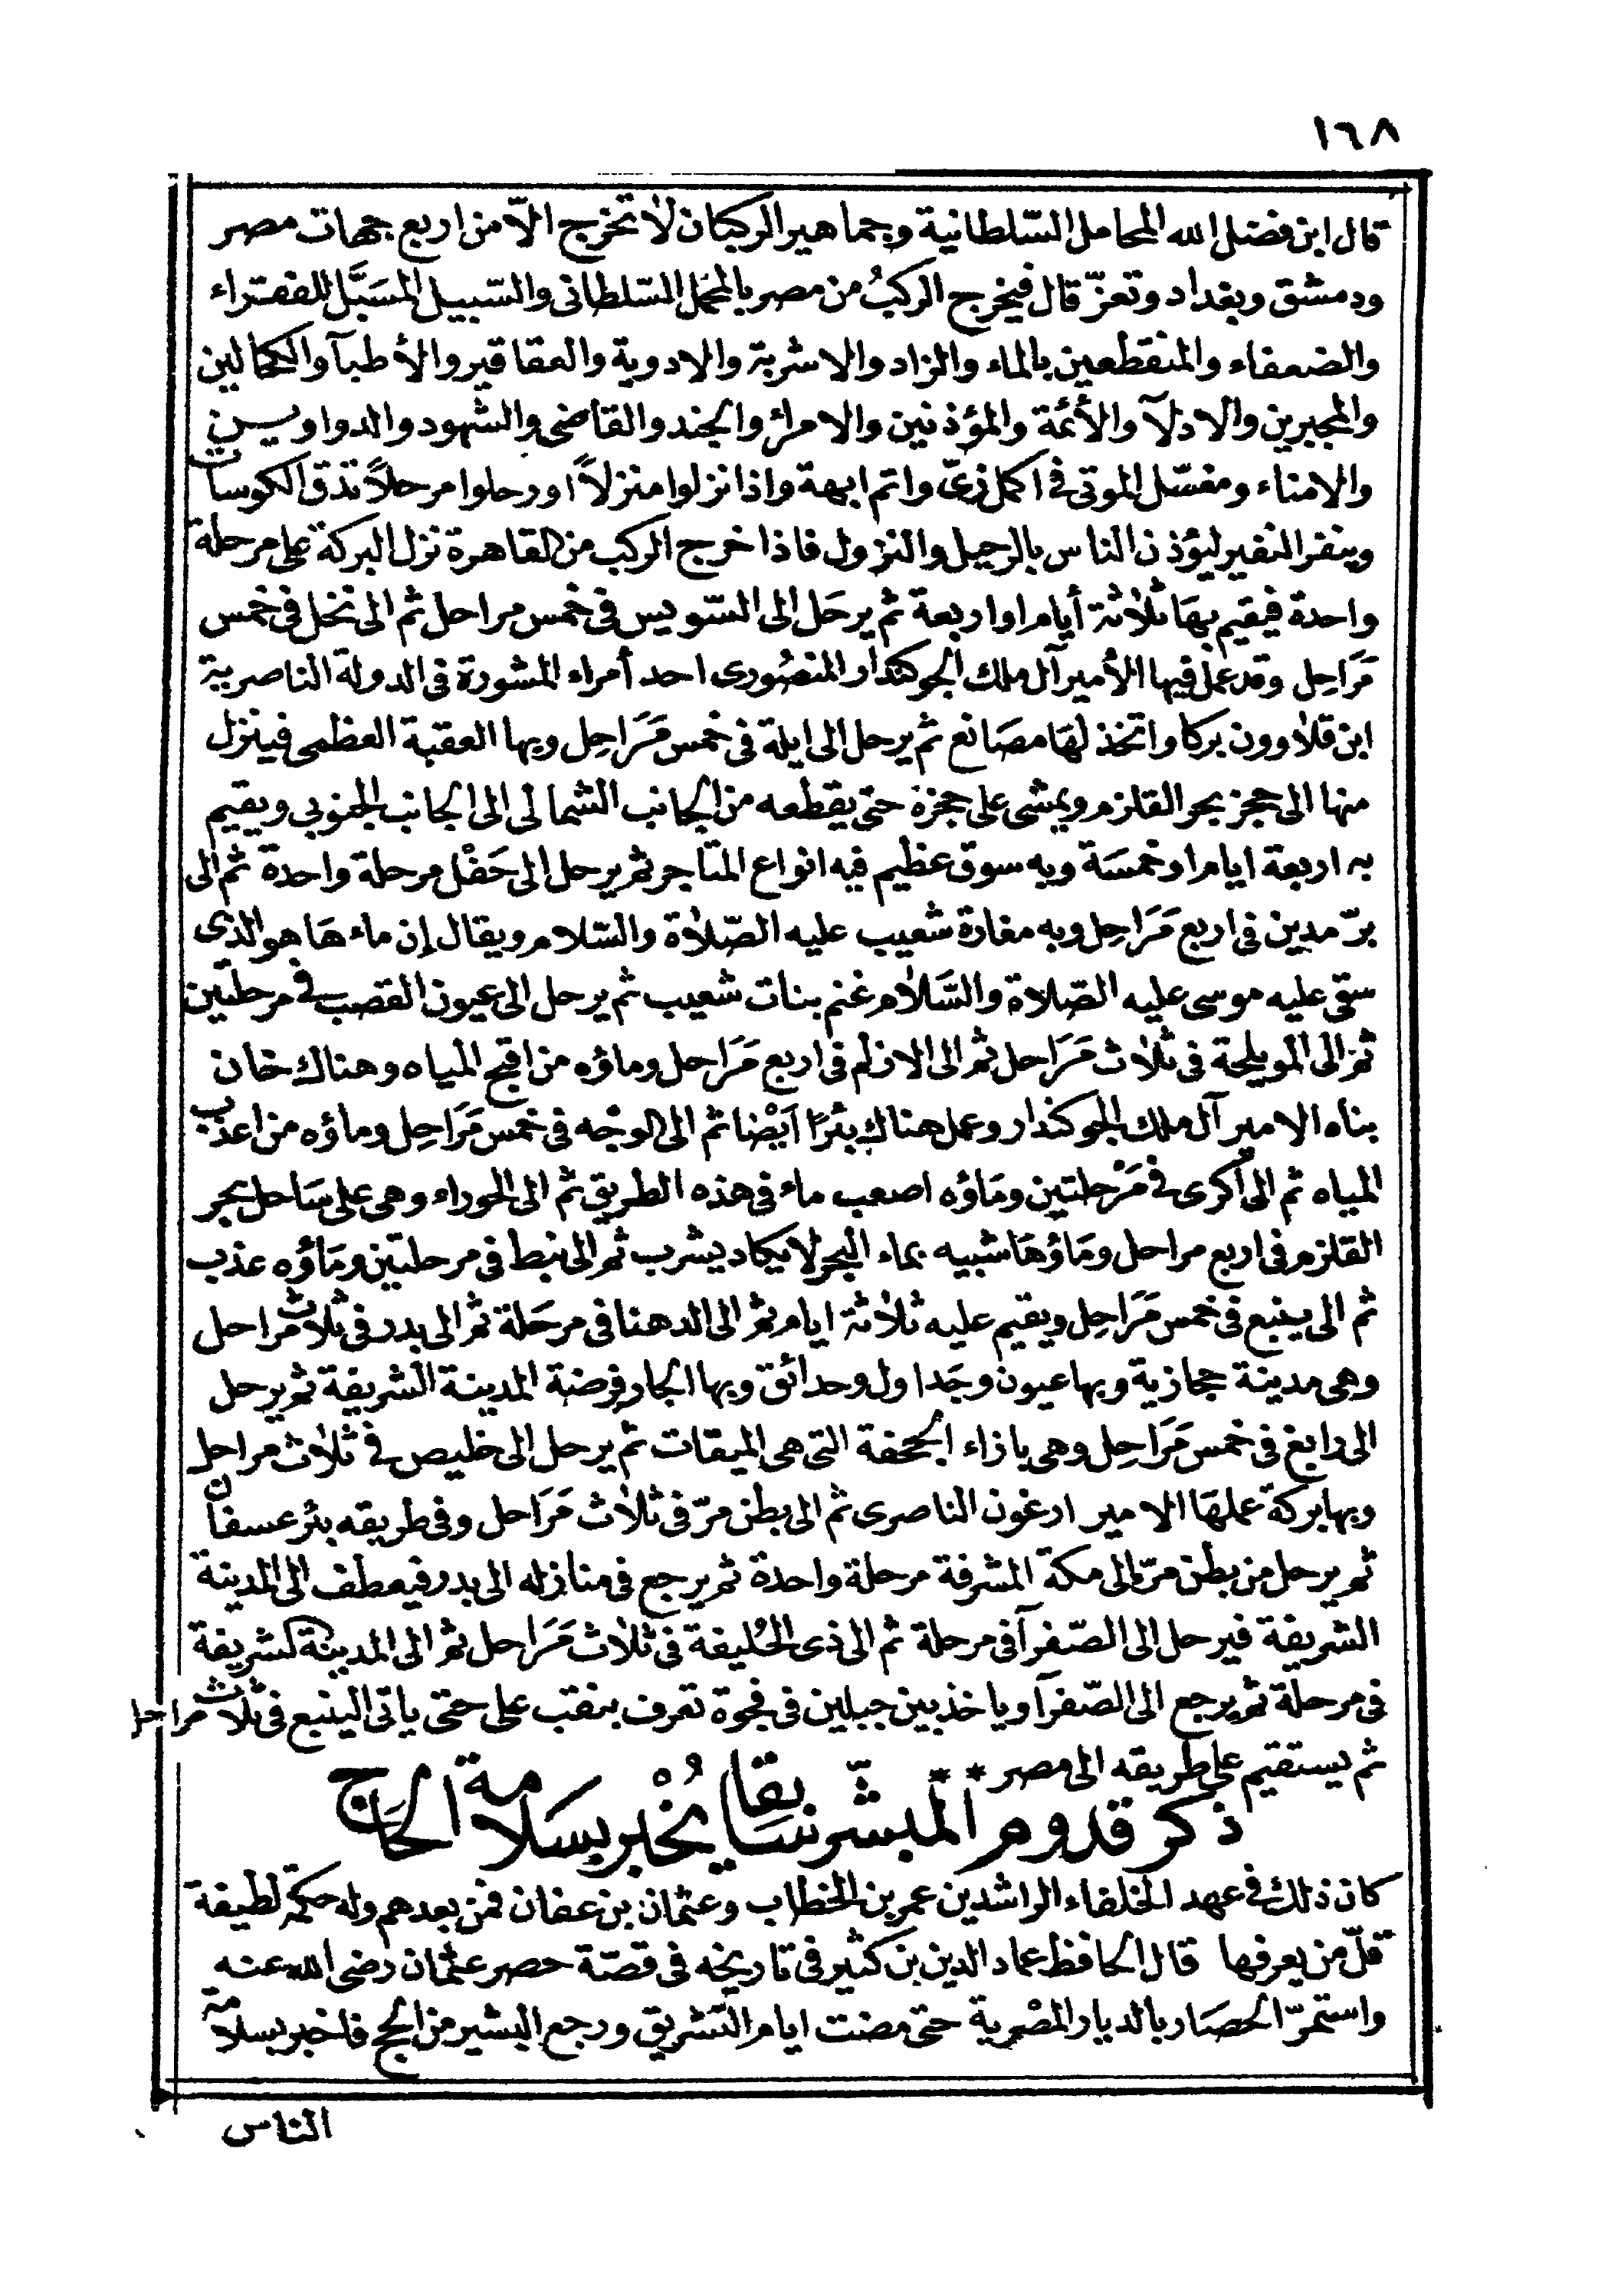 ١٦٨
قال ابن فضل الله المحامل السّلطانية وجماهير الركبان لا تخرج الّا من اربع جهات مصر
ودمشق وبغداد وتعزّ قال فيخرج الركبُ من مصر بالمحمل السّلطانى والسّبيل المسَبَّل للفقراء
والضعفاء والمنقطعين بالماء والزاد والاشربة والادوية والعقاقير والأطبآ والكحالين
والمجبرين والادلآ والأئمة والمؤذنين والامرآء والجند والقاضى والشهود والدواوين
والامناء ومغسّل الموتى فى اكمل زىّ واتم ابهة واذا نزلوا منزلاً او رحلوا مرحلاً تدق الكوسات
وينفر النفير ليؤذن الناس بالرحيل والنزول فاذا خرج الركب من القاهرة نزل البركة على مرحلة
واحدة فيقيم بهَا ثلاثة أيام او اربعة ثم يرحَل الى السّويس فى خمس مراحل ثم الى نخل فى خمس
مَرَاحِل وقد عمل فيها الأمير آل ملك الجوكندار المنصُورى احد أمراء المشورة فى الدولة الناصرية
ابن قلاوون بركا واتخذ لهَا مصَانع ثم يرحل الى ايلة فى خمس مَرَاحِل وبها العقبة العظمى فينزل
منها الى حجز بحر القلزم ويمشى على حجزة حتى يقطعه من الجانب الشمالى الى الجانب الجنوبى ويقيم
به اربعة ايام او خمسَة وبه سوق عظيم فيه انواع المتاجر ثم يرحل الى حَفْل مرحلة واحدة ثم الى
برّ مدين فى اربع مَرَاحِل وبه مغارة شعيب عليه الصّلاة والسّلام ويقال إن ماءهَا هو الذى
سقى عليه موسى عليه الصّلاة والسَّلام غنم بنات شعيب ثم يرحل الى عيون القصب فى مرحلتين
ثم الى المويلحة فى ثلاث مَرَاحل ثم الى الازلم فى اربع مَرَاحل وماؤه من اقبح المياه وهناك خان
بناه الامير آل ملك الجوكندار وعمل هناك بئرًا اَيْضا ثم الى الوجْه فى خمس مَرَاحِل وماؤه من اعذب
المياه ثم الى اكرى فى مَرْحلتين ومَاؤه اصعب ماء فى هذه الطريق ثم الى الحوراء وهى على سَاحل بحر
القلزم فى اربع مراحل ومَاؤهَا شبيه بماء البحر لا يكاد يشرب ثم الى نبط فى مرحلتين ومَاؤه عذب
ثم الى ينبع فى خمس مَرَاحِل ويقيم عليه ثلاثة ايام ثم الى الدهنا فى مرحَلة ثم الى بدر فى ثلاث مراحل
وهى مدينة حجازية وبها عيون وجَداول وحدائق وبها الجار فرضة المدينة الشريفة ثم يرحل
الى رابغ فى خمس مَرَاحِل وهى بازاء الجحفة التى هى الميقات ثم يرحل الى خليص فى ثلاث مراحل
وبها بركة عملهَا الامير ارغون الناصرى ثم الى بطن مرّ فى ثلاث مَرَاحل وفى طريقه بئر عسفان
ثم يرحل من بطن مرّ الى مكة المشرفة مرحلة واحدة ثم يرجع فى منازله الى بدر فيعطف الى المدينة
الشريفة فيرحل الى الصّفرآ فى مرحلة ثم الى ذى الحُليفة فى ثلاث مَرَاحل ثم الى المدينة الشريفة
فى مرحلة ثم يرجع الى الصّفرآ وياخذ بين جبلين فى فجوة تعرف بنقب على حتى ياتى الينبع فى ثلاث مراحل
ثم يستقيم على طريقه الى مصر **
ذكر قدوم المبشّر سَابقا يُخْبر بسَلامة الحَاج
كان ذلك فى عهد الخلفاء الراشدين عمر بن الخطاب وعثمان بن عفان فمن بعدهم وله حكمة لطيفة
قلّ من يعرفها قال الحافظ عماد الدين بن كثير فى تاريخه فى قصّة حصر عثمان رضى الله عنه
واستمرّ الحصَار بالديار المصْرية حتى مضت ايام التشريق ورجع البشير من الحج فاخبر بسلامة
الناس